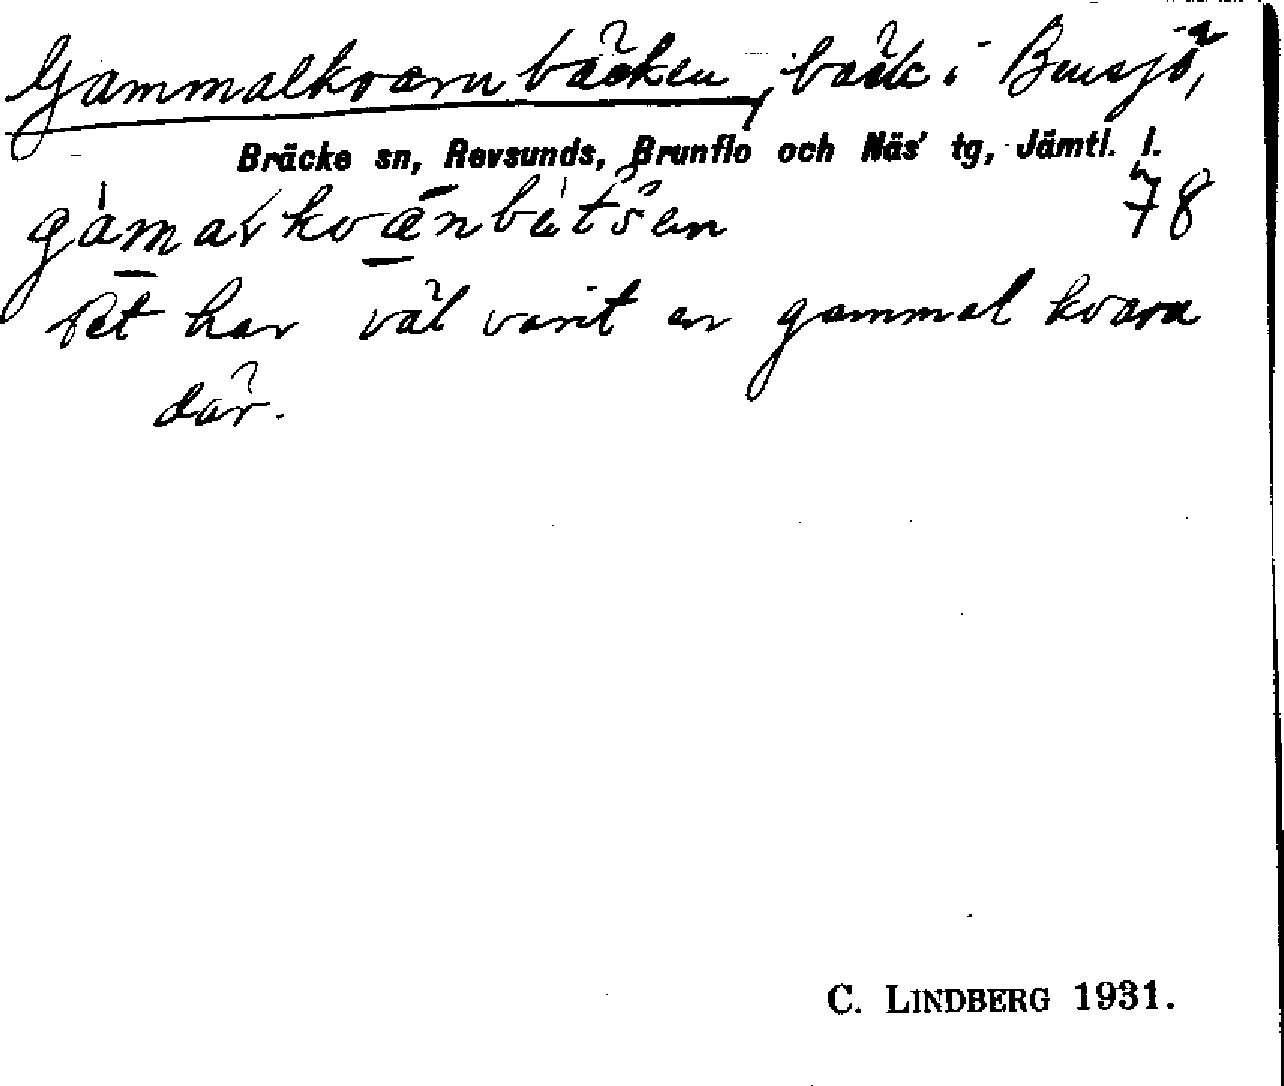 Gammalkvarnbäcken, bäck i Bensjö,
Bräcke sn, Revsunds, Brunflo och Näs' tg, Jämtl. l.
78
Det har väl varit en gammal kvarn
där.
C. LINDBERG 1931.